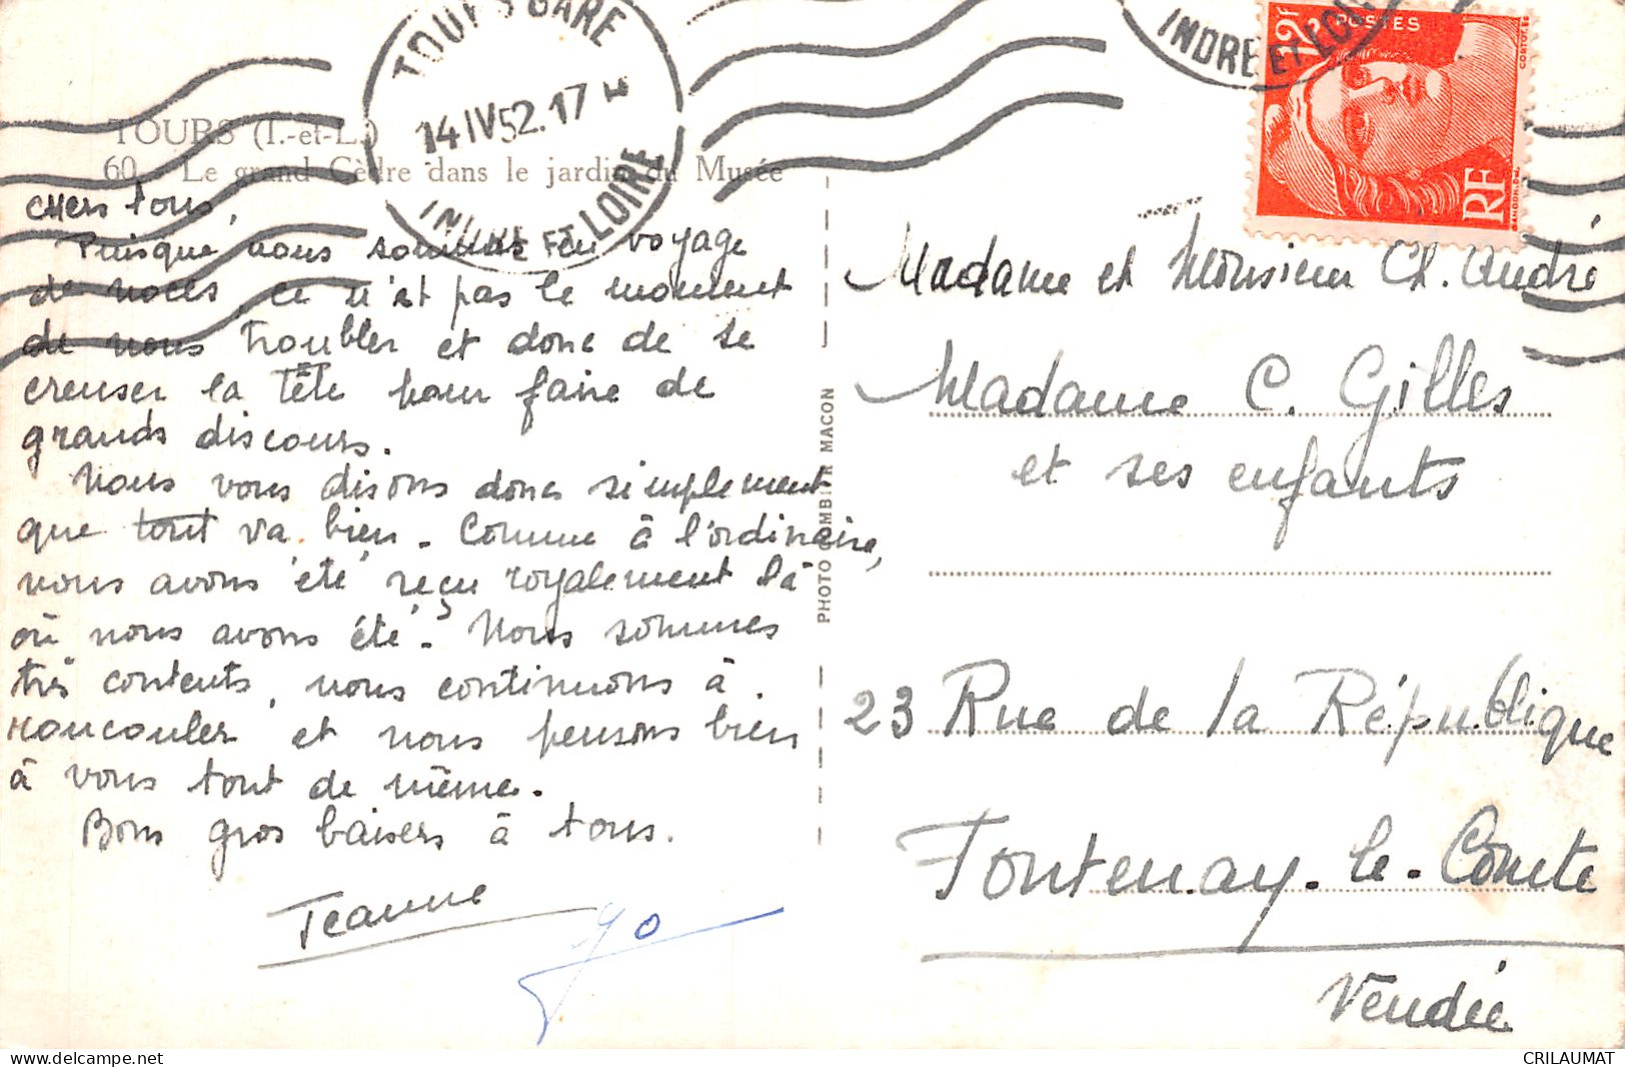 TOURS GARE
14 IV 52. 17 H
INDRE ET LOIRE
INDRE ET LOIRE
12F
POSTES
RF
TOURS (I.-et-L.)
60. Le grand Cèdre dans le jardin du Musée
Chers tous,
Puisque nous sommes en voyage
de noces ce n'est pas le moment
de nous troubler et donc de se
creuser la tête pour faire de
grands discours.
Nous vous disons donc simplement
que tout va bien. Comme à l'ordinaire,
nous avons été reçu royalement là
où nous avons été. Nous sommes
très contents, nous continuons à
et nous pensons bien
à vous tout de même.
Bons gros baisers à tous.
Jeanne
Jo
PHOTO COMBIER MACON
Madame et Monsieur Ch. André
Madame C. Gilles
et ses enfants
23 Rue de la République
Fontenay-le-Comte
Vendée
CRILAUMAT